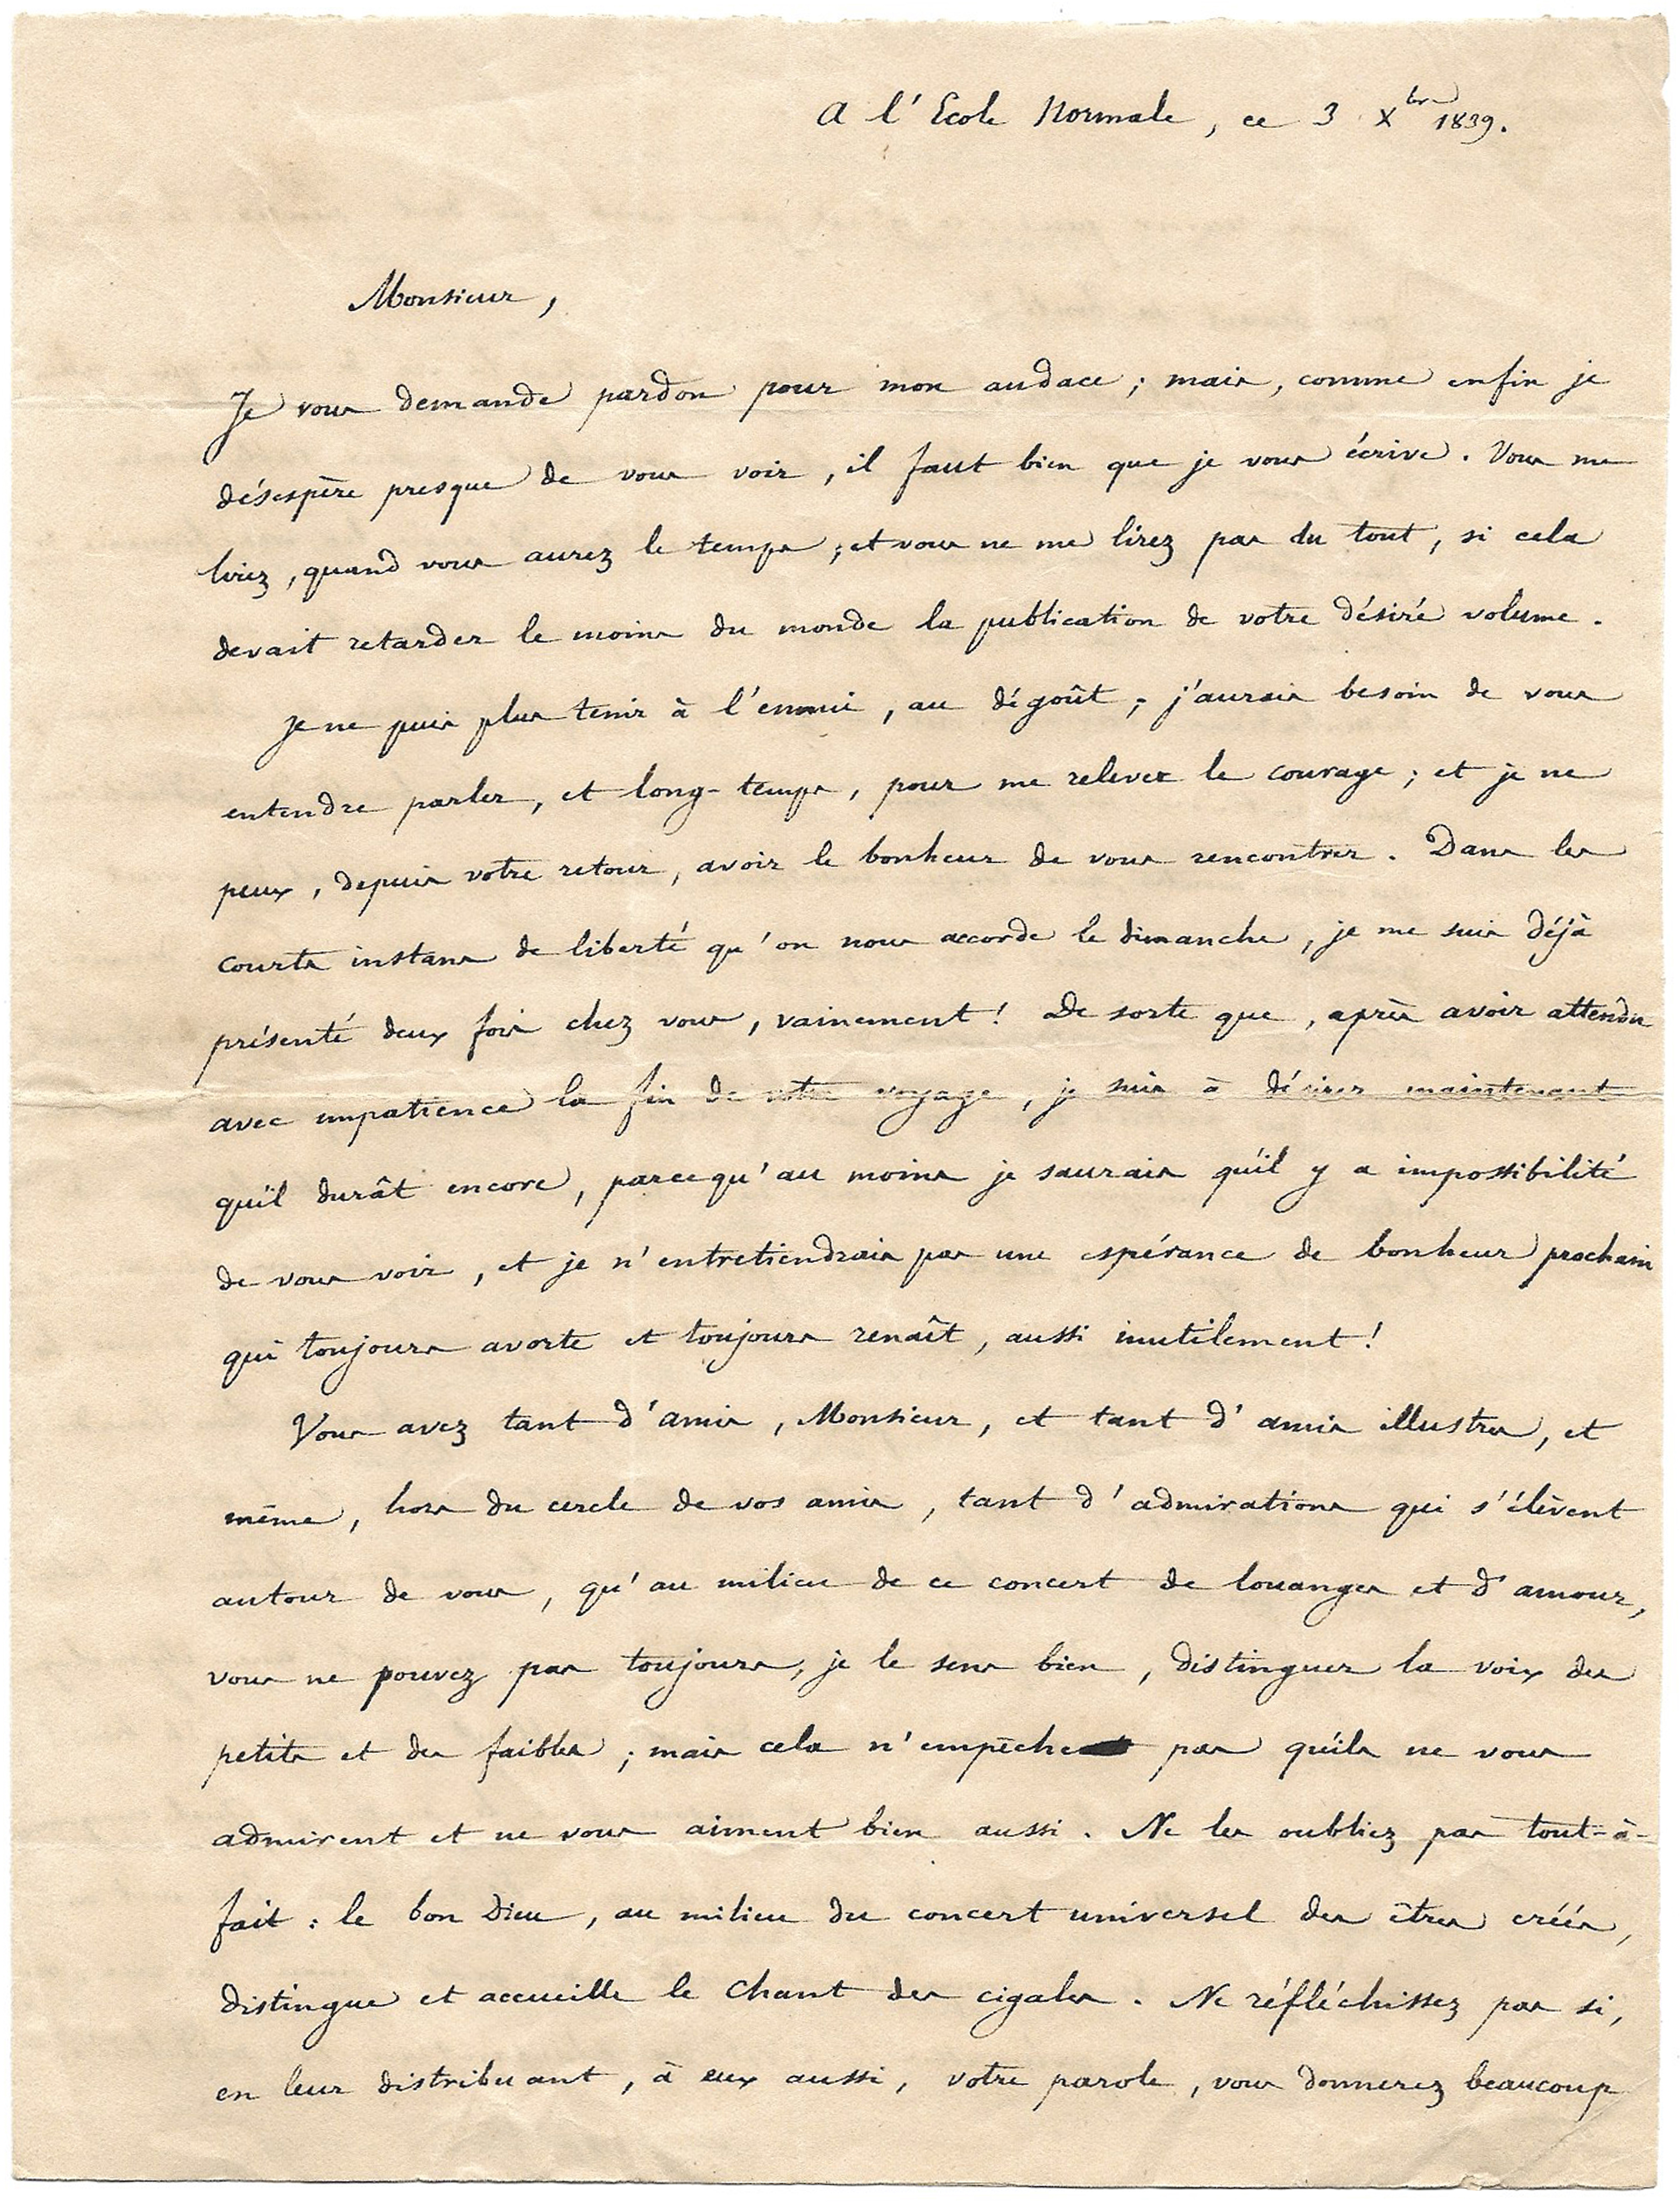 A l'Ecole Normale, ce 3 Xbre 1839.
Monsieur,
Je vous demande pardon pour mon audace ; mais, comme enfin je
désespère presque de vous voir, il faut bien que je vous écrive. Vous me
lirez, quand vous aurez le temps ; et vous ne me lirez pas du tout, si cela
devait retarder le moins du monde la publication de votre désiré volume.
Je ne puis plus tenir à l'ennui, au dégoût ; j'aurais besoin de vous
entendre parler, et long-temps, pour me relever le courage ; et je ne
peux, depuis votre retour, avoir le bonheur de vous rencontrer. Dans les
courts instans de liberté qu'on nous accorde le dimanche, je me suis déjà
présenté deux fois chez vous, vainement ! De sorte que, après avoir attendu
avec impatience la fin de votre voyage, je suis à désirer maintenant
qu'il durât encore, parcequ'au moins je saurais qu'il y a impossibilité
de vous voir, et je n'entretiendrais pas une espérance de bonheur prochain
qui toujours avorte et toujours renaît, aussi inutilement !
Vous avez tant d'amis, Monsieur, et tant d'amis illustres, et
même, hors du cercle de vos amis, tant d'admirations qui s'élèvent
autour de vous, qu'au milieu de ce concert de louanges et d'amour,
vous ne pouvez pas toujours, je le sens bien, distinguer la voix des
petits et des faibles ; mais cela n'empêche pas qu'ils ne vous
admirent et ne vous aiment bien aussi. Ne les oubliez pas tout-à-
fait : le bon Dieu, au milieu du concert universel des êtres créés,
distingue et accueille le chant des cigales. Ne réfléchissez pas si,
en leur distribuant, à eux aussi, votre parole, vous donnerez beaucoup